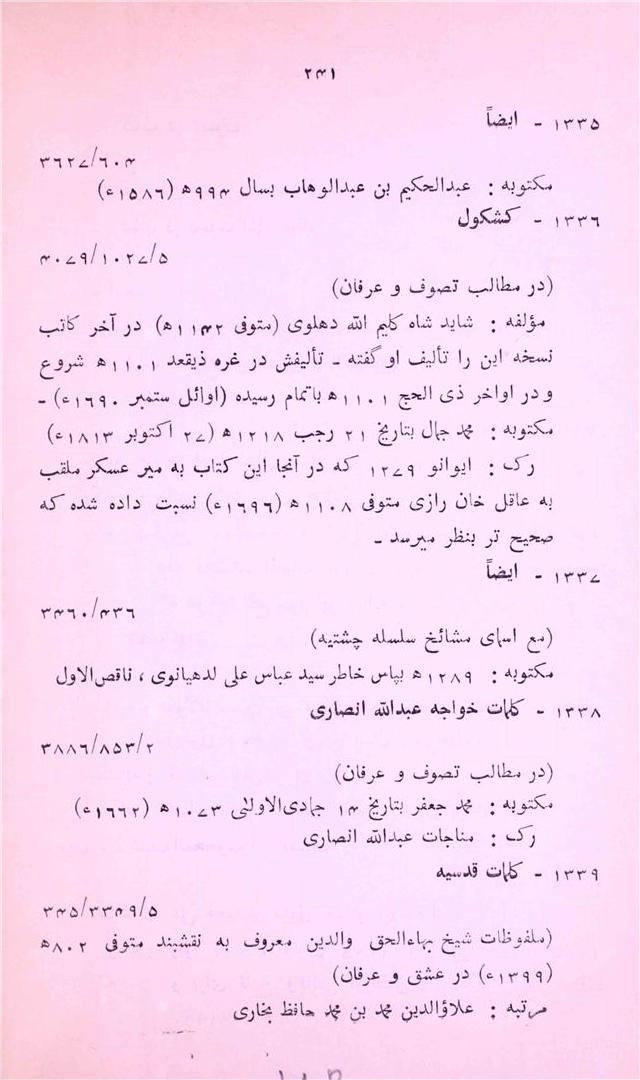 ۲۴۱
۱۳۳۵ - ایضاً
۳۶۲۷/۶۰۴
مکتوبه : عبدالحکیم بن عبدالوهاب بسال ۹۹۴ھ (۱۵۸۶ء)
۱۳۳۶ - کشکول
۴۰۷۹/۱۰۲۷/۵
(در مطالب تصوف و عرفان)
مؤلفه : شاید شاه کلیم الله دهلوی (متوفی ۱۱۴۲ھ) در آخر کاتب
نسخه این را تألیف او گفته - تألیفش در غره ذیقعد ۱۱۰۱ھ شروع
و در اواخر ذی الحج ۱۱۰۱ھ باتمام رسیده (اوائل ستمبر ۱۶۹۰ء) -
مکتوبه : محمد جمال بتاریخ ۲۱ رجب ۱۲۱۸ھ (۲۷ اکتوبر ۱۸۱۳ء)
رک : ایوانو ۱۲۷۹ که در آنجا این کتاب به میر عسکر ملقب
به عاقل خان رازی متوفی ۱۱۰۸ھ (۱۶۹۶ء) نسبت داده شده که
صحیح تر بنظر میرسد -
۱۳۳۷ - ایضاً
۳۴۶۰/۴۳۶
(مع اسمای مشائخ سلسله چشتیه)
مکتوبه : ۱۲۸۹ھ بپاس خاطر سید عباس علی لدهیانوی ، ناقص‌الاول
۱۳۳۸ - کلمات خواجه عبدالله انصاری
۳۸۸۶/۸۵۳/۲
(در مطالب تصوف و عرفان)
مکتوبه : محمد جعفر بتاریخ ۱۴ جمادی‌الاولٰی ۱۰۷۳ھ (۱۶۶۲ء)
رک : مناجات عبدالله انصاری
۱۳۳۹ - کلمات قدسیه
۳۴۵/۳۳۴۹/۵
(ملفوظات شیخ بهاءالحق والدین معروف به نقشبند متوفی ۸۰۲ھ
(۱۳۹۹ء) در عشق و عرفان)
مرتبه : علاؤالدین محمد بن محمد حافظ بخاری